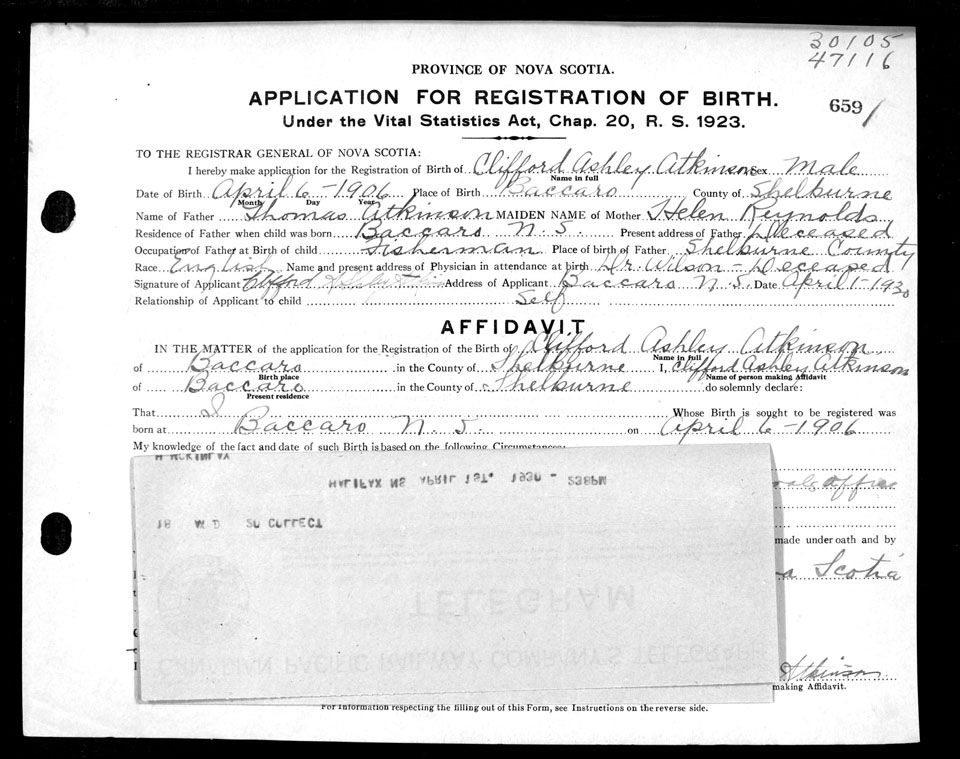 30105
47116
PROVINCE OF NOVA SCOTIA.
APPLICATION FOR REGISTRATION OF BIRTH.
659/
Under the Vital Statistics Act, Chap. 20, R. S. 1923.
TO THE REGISTRAR GENERAL OF NOVA SCOTIA:
I hereby make application for the Registration of Birth of Clifford Ashley Atkinson Sex Male
Name in full
Date of Birth April 6 - 1906 Place of Birth Baccaro County of Shelburne
Month Day Year
Name of Father Thomas Atkinson MAIDEN NAME of Mother Helen Reynolds
Residence of Father when child was born Baccaro N. S. Present address of Father Deceased
Occupation of Father at Birth of child Fisherman Place of birth of Father Shelburne County
Race English Name and present address of Physician in attendance at birth Dr. Wilson - Deceased
Signature of Applicant Clifford Ashley Atkinson Address of Applicant Baccaro N. S. Date April 1 - 1930
Relationship of Applicant to child Self
AFFIDAVIT
IN THE MATTER of the application for the Registration of the Birth of Clifford Ashley Atkinson
Name in full
of Baccaro in the County of Shelburne I, Clifford Ashley Atkinson
Birth place Name of person making Affidavit
of Baccaro in the County of Shelburne do solemnly declare:
Present residence
That I Whose Birth is sought to be registered was
born at Baccaro N. S. on April 6 - 1906
My knowledge of the fact and date of such Birth is based on the following Circumstances:
HALIFAX NS APRIL 1ST. 1930 - 538PM
18 W D SU COLLECT
made under oath and by
a Scotia
TELEGRAM
CANADIAN PACIFIC RAILWAY COMPANY'S TELEGRAPH
Atkinson
making Affidavit.
For information respecting the filling out of this Form, see Instructions on the reverse side.